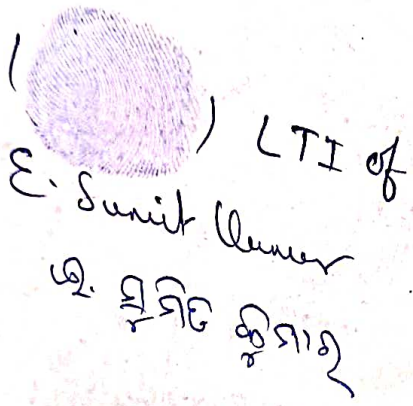 ( ) LTI of
E. Sumit Kumar
ଇ. ସୁମିତ କୁମାର